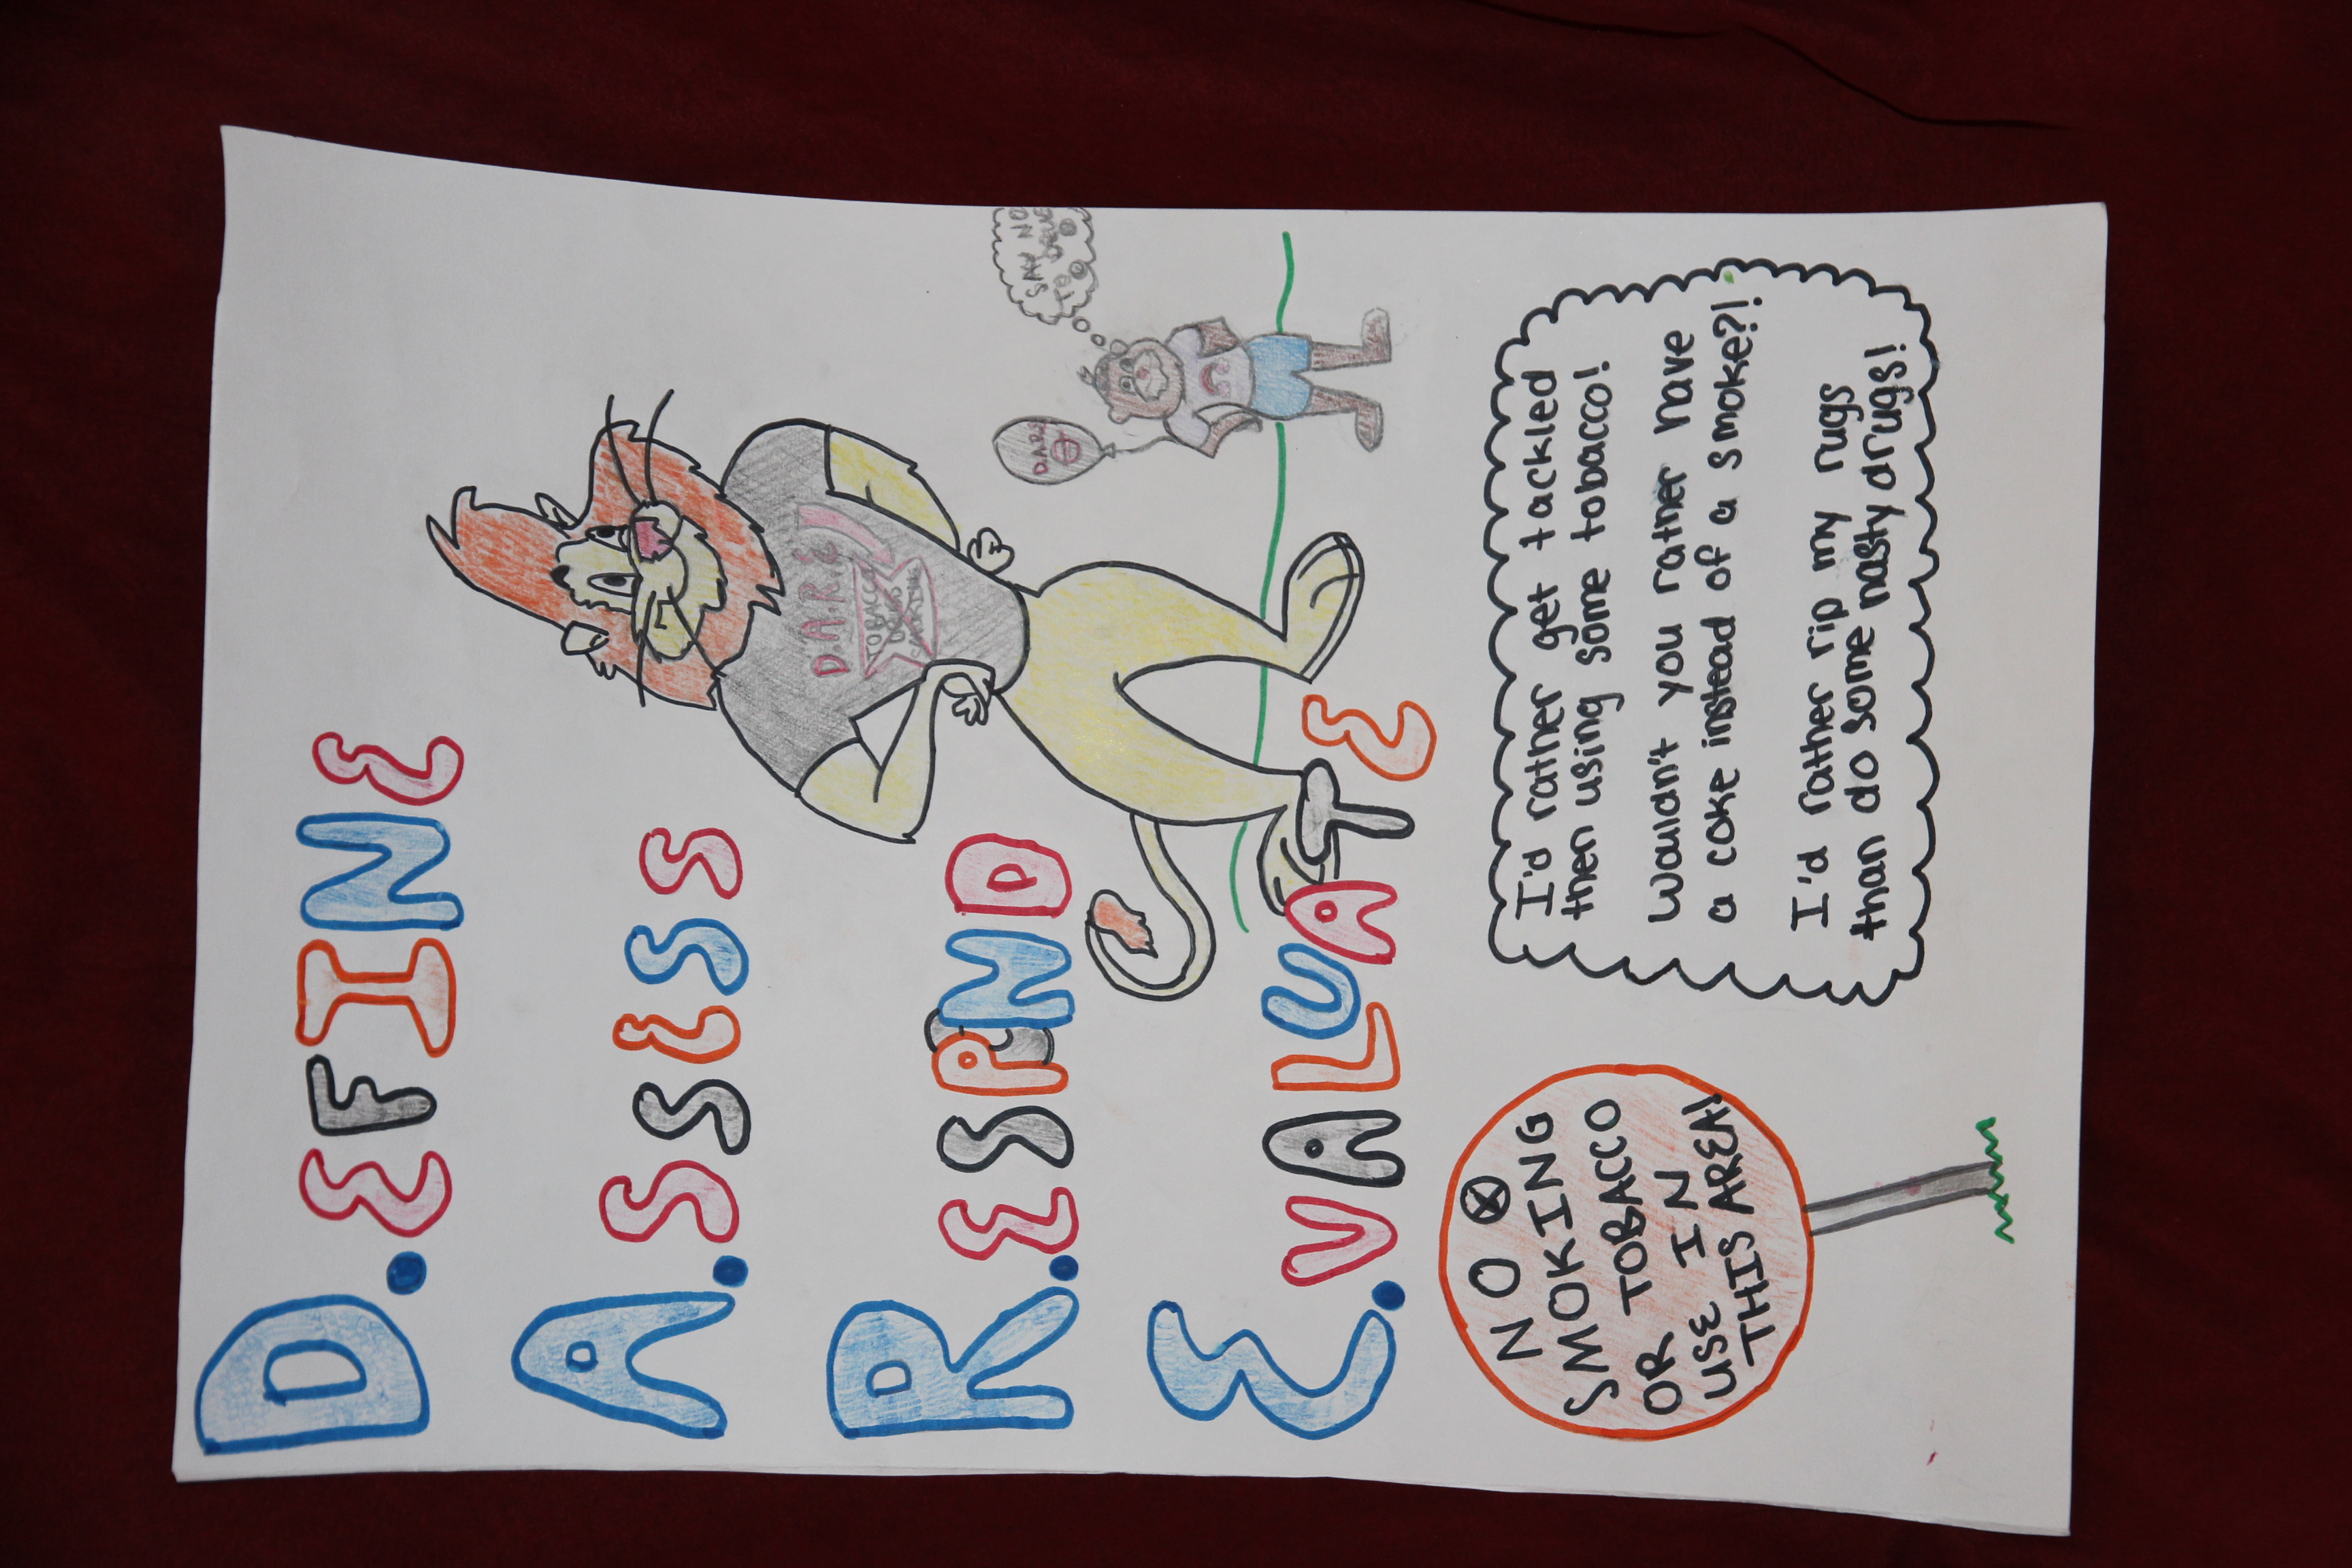 D.EFINE
A.SSESS
R.ESPOND
E.VALUATE
D.A.R.E
TOBACCO
DRUGS
SMOKING
D.A.R.E
SAY NO
TO
NO
SMOKING
OR TOBACCO
USE IN
THIS AREA!
I'd rather get tackled
then using some tobacco!
Wouldn't you rather have
a coke instead of a smoke?!
I'd rather rip my rugs
than do some nasty drugs!